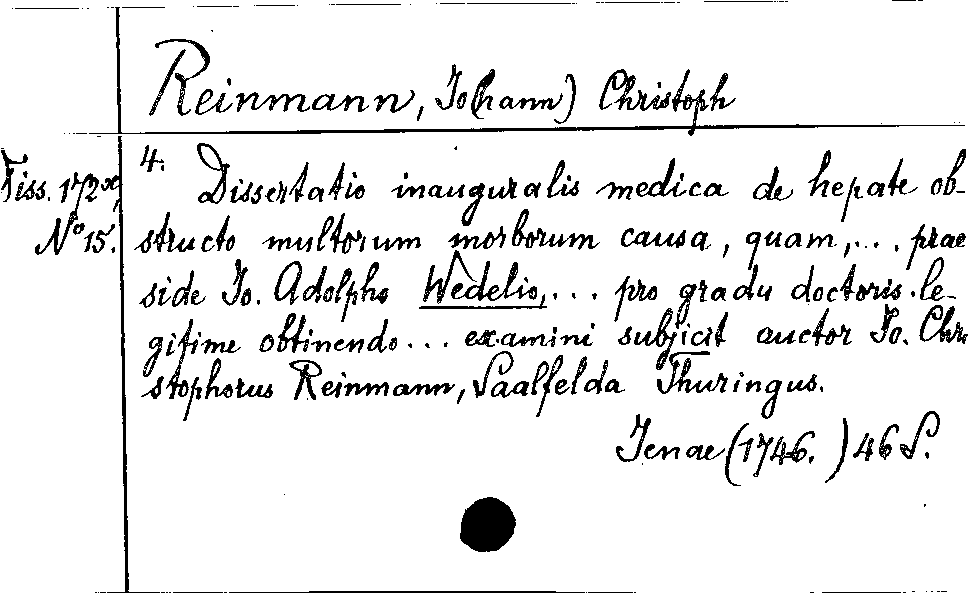 Reinmann, Jo(hann) Christoph
4.
Diss. 172
No 15.
Dissertatio inauguralis medica de hepate ob-
structo multorum morborum causa, quam,... prae
side Jo. Adolpho Wedelio,... pro gradu doctoris le-
gitime obtinendo... examini subjicit auctor Jo. Chri
stophorus Reinmann, Saalfelda Thuringus.
Jenae (1746.) 46 S.